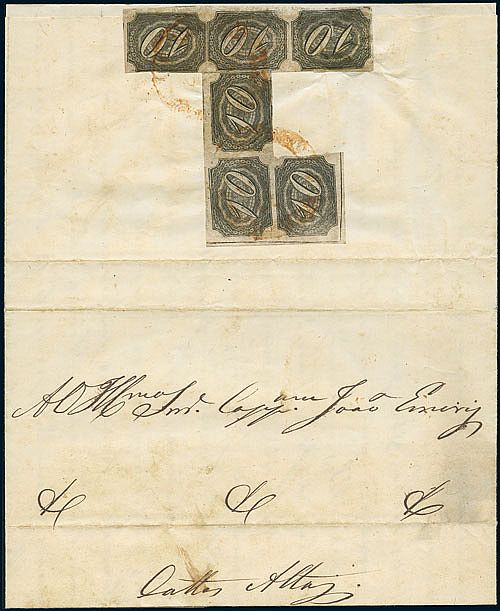 10 10 10
10
10 10
Ao Illmo Snr. Capp.am João Emeriz
&c &c &c
Cattas Altas